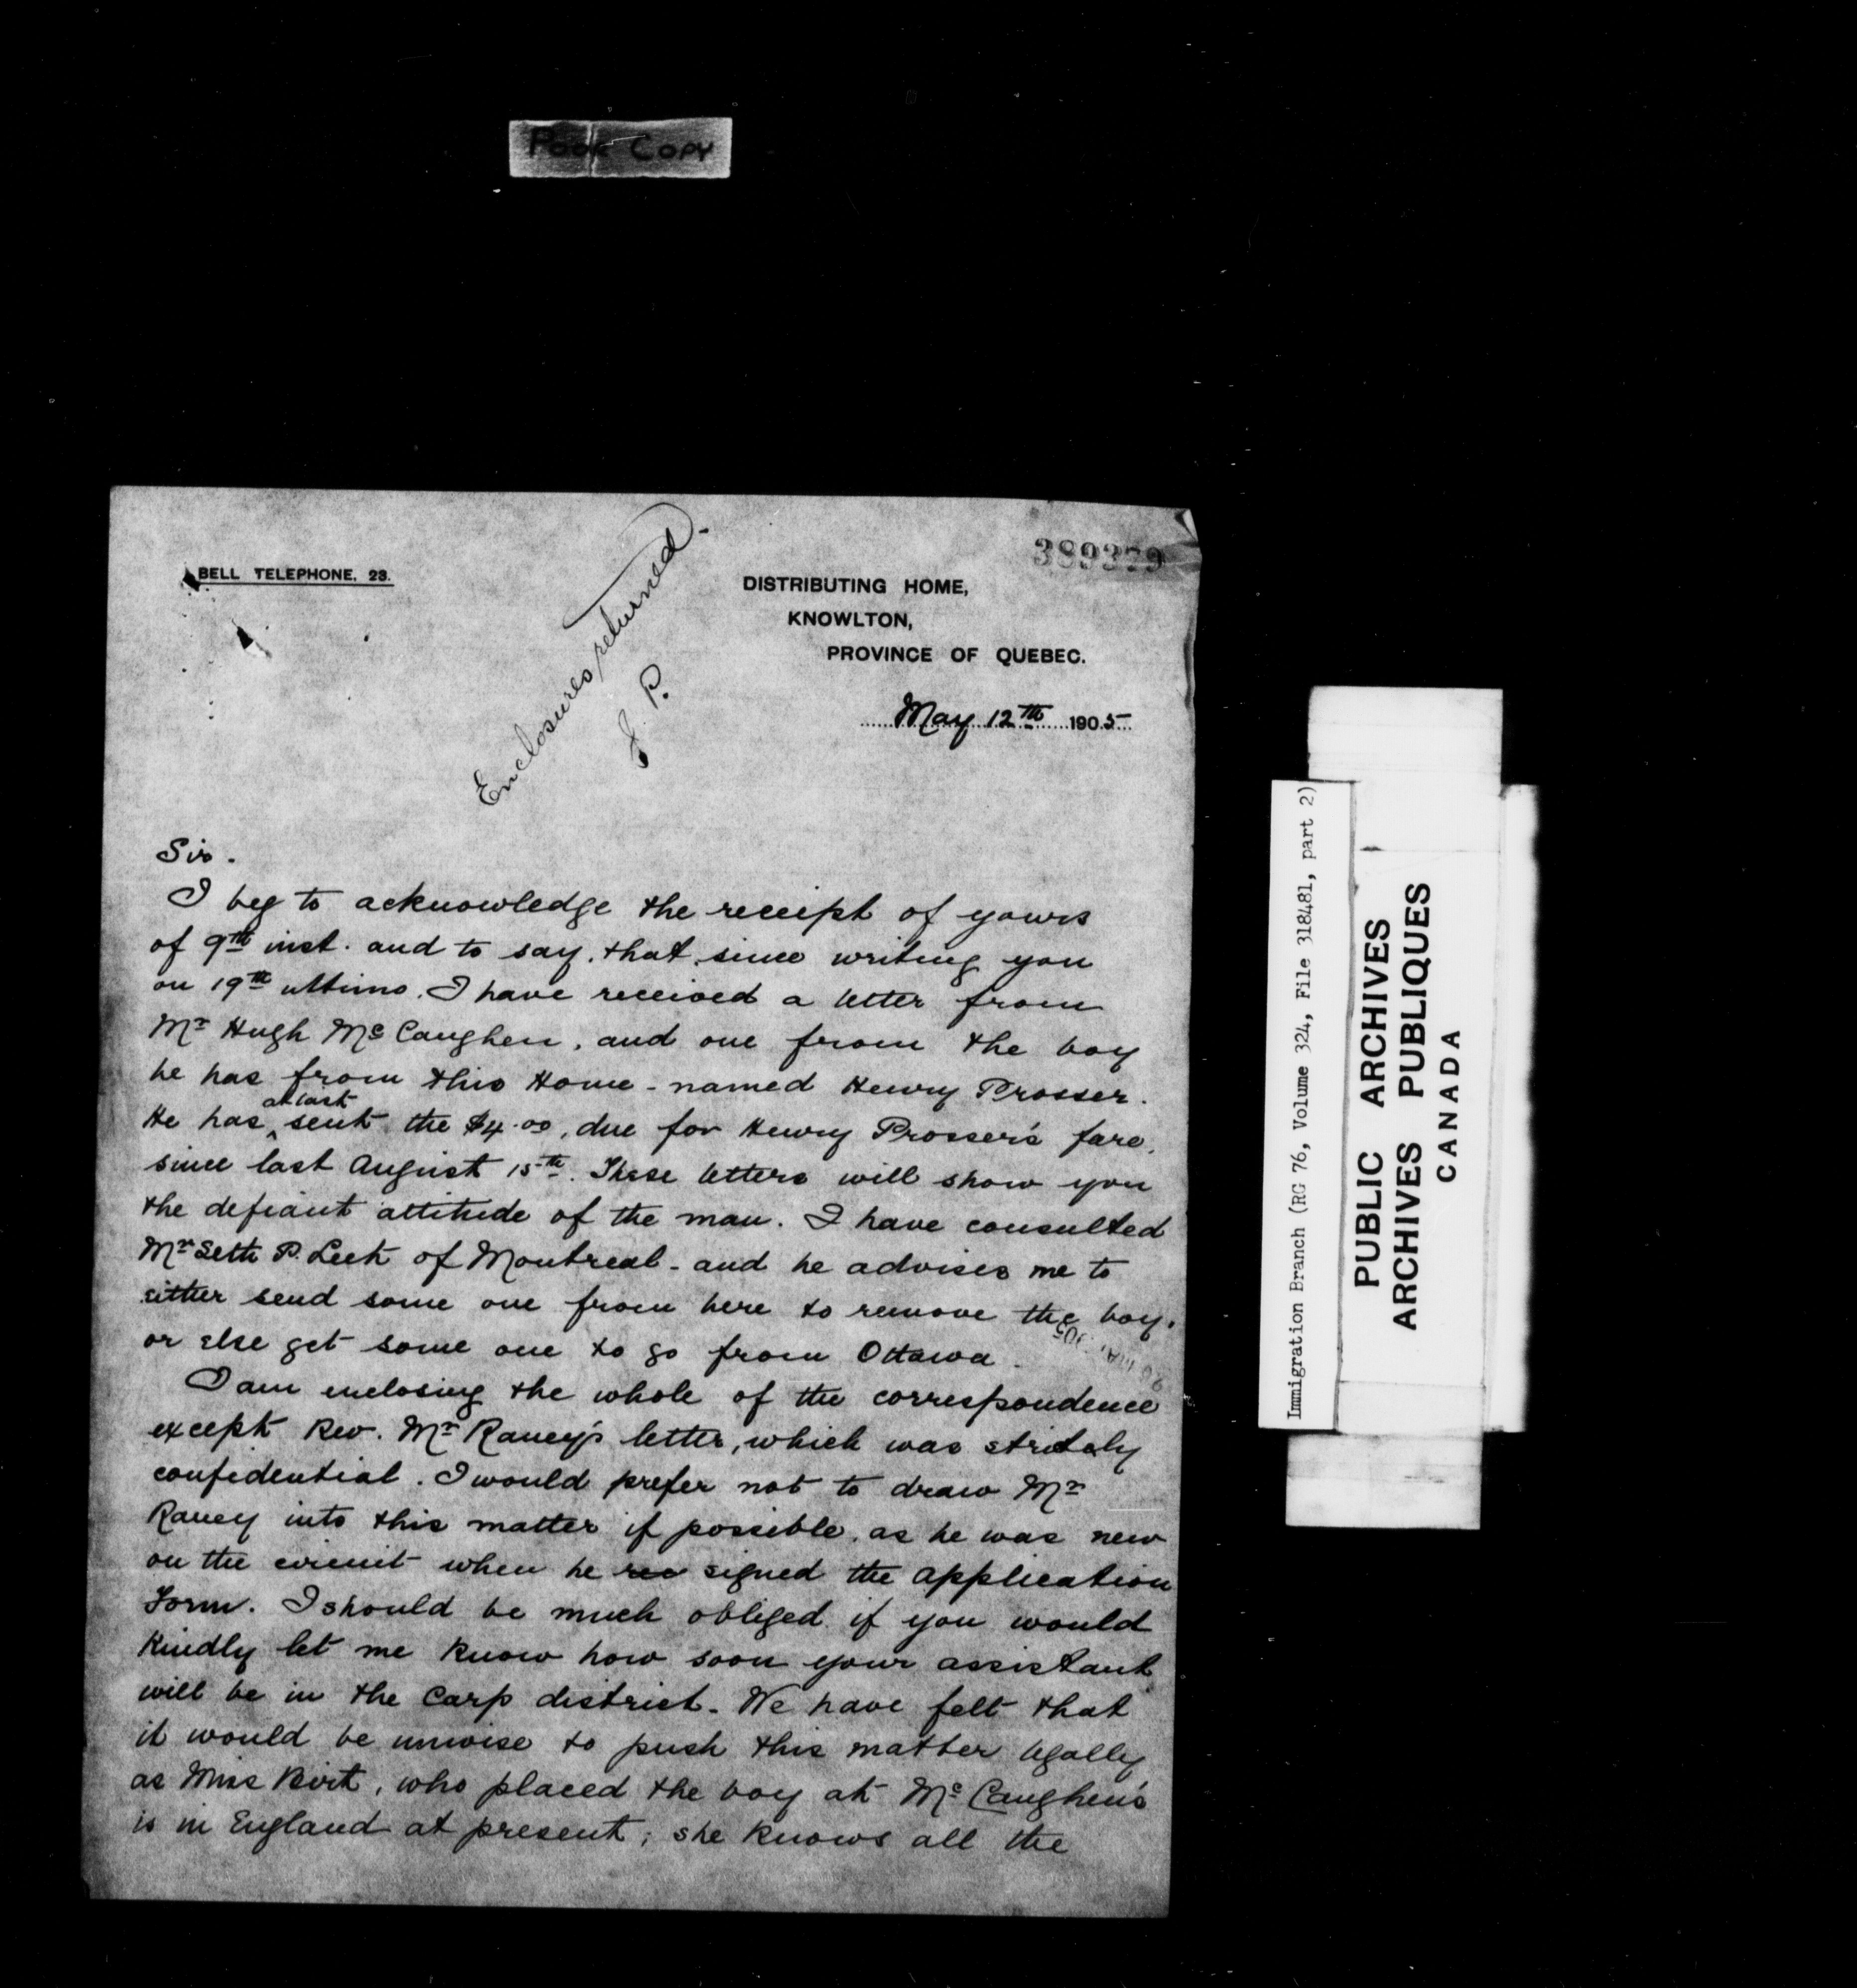 Poor Copy
389379
BELL TELEPHONE, 23.
DISTRIBUTING HOME,
KNOWLTON,
PROVINCE OF QUEBEC.
Enclosures returned.
J. P.
May 12th 1905
Sir.
I beg to acknowledge the receipt of yours
of 9th inst. and to say, that, since writing you
on 19th ultimo, I have received a letter from
Mr Hugh McCaughen, and one from the boy
he has from this Home - named Henry Prosser.
He has at last sent the $4.00, due for Henry Prosser's fare,
since last August 15th. These letters will show you
the defiant attitude of the man. I have consulted
Mr Seth P. Leet of Montreal - and he advises me to
either send some one from here to remove the boy,
or else get some one to go from Ottawa.
I am enclosing the whole of the correspondence
except Rev. Mr Raney's letter, which was strictly
confidential. I would prefer not to draw Mr
Raney into this matter if possible, as he was new
on the circuit when he rec signed the application
Form. I should be much obliged if you would
kindly let me know how soon your assistant
will be in the Carp district. We have felt that
it would be unwise to push this matter legally
as Miss Birt, who placed the boy at McCaughen's
is in England at present; she knows all the
Immigration Branch (RG 76, Volume 324, File 318481, part 2)
PUBLIC ARCHIVES
ARCHIVES PUBLIQUES
CANADA